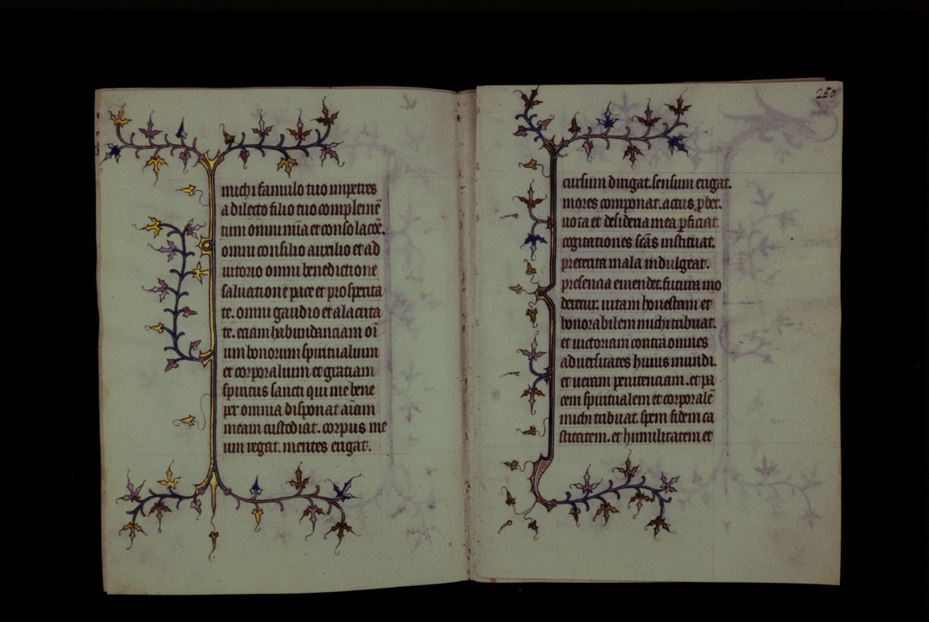 michi famulo tuo impetres
a dilecto filio tuo complemē
tum omni mīa et consolacōe.
omni consilio auxilio et ad
iutorio omni benedictione
saluatione pace et prosperita
te. omni gaudio et alacrita
te. etiam habundanciam oī
um bonorum spiritualium
et corporalium et gratiam
spiritus sancti qui me bene
per omnia disponat aīam
meam custodiat. corpus me
um regat. mentes erigat.
250
cursum dirigat. sensum erigat.
mores componat. actus ꝓbet.
uota et desideria mea ꝑficiat.
cogitationes scās instituat.
preterita mala indulgeat.
presencia emendet. futura mo
deretur. uitam honestam et
honorabilem michi tribuat.
et uictoriam contra omnes
aduersitates huius mundi.
et ueram penitenciam. et pa
cem spiritualem et corporalē
michi tribuat. spem fidem ca
stitatem. et humilitatem et